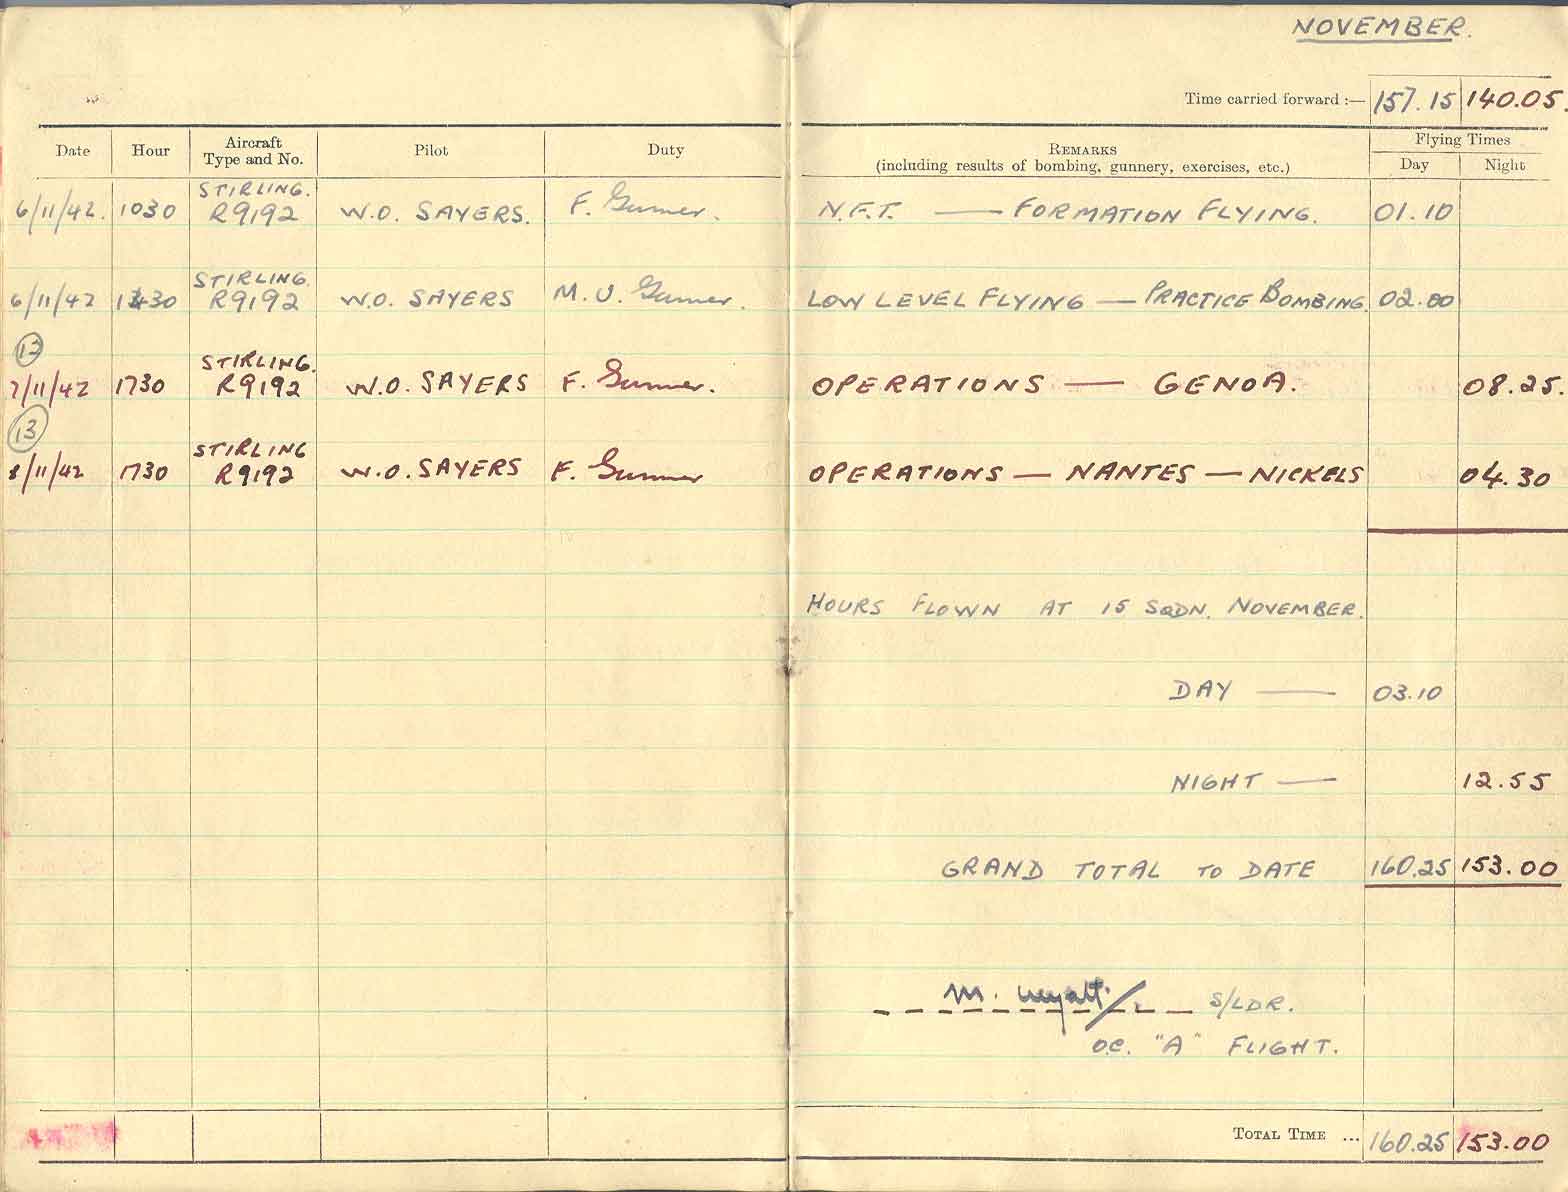 NOVEMBER.
Time carried forward :— 157.15 140.05.
Date Hour Aircraft Type and No. Pilot Duty REMARKS (including results of bombing, gunnery, exercises, etc.) Flying Times Day Night
6/11/42. 1030 STIRLING. R9192 W.O. SAYERS. F. Gunner. N.F.T. — FORMATION FLYING. 01.10
6/11/42 1430 STIRLING. R9192 W.O. SAYERS M.U. Gunner. LOW LEVEL FLYING — PRACTICE BOMBING. 02.00
12
7/11/42 1730 STIRLING. R9192 W.O. SAYERS F. Gunner. OPERATIONS — GENOA. 08.25.
13
8/11/42 1730 STIRLING R9192 W.O. SAYERS F. Gunner OPERATIONS — NANTES — NICKELS 04.30
HOURS FLOWN AT 15 SQDN. NOVEMBER.
DAY — 03.10
NIGHT — 12.55
GRAND TOTAL TO DATE 160.25 153.00
M. Wyatt. S/LDR.
O.C. "A" FLIGHT.
TOTAL TIME ... 160.25 153.00